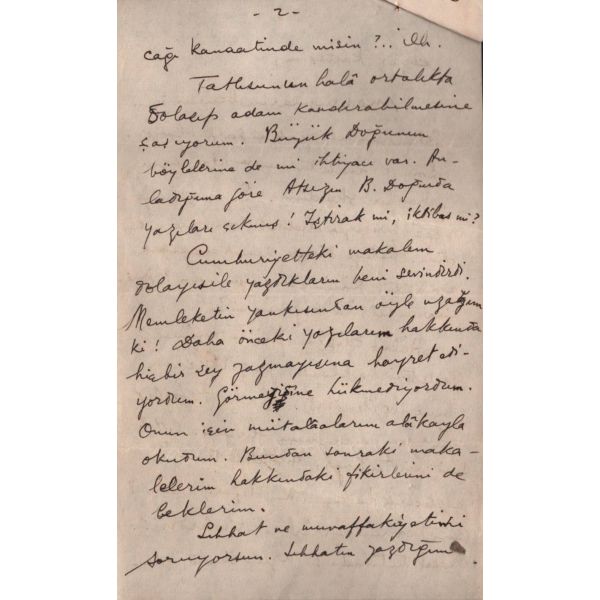 - 2 -
cağı kanaatinde misin ?.. ilh.
Tatlısunun halâ ortalıkta
dolaşıp adam kandırabilmesine
şaşıyorum. Büyük Doğunun
böylelerine de mi ihtiyacı var. An-
ladığıma göre Atsızın B. Doğuda
yazıları çıkmış ! İştirak mi, iktibas mı ?
Cumhuriyetteki makalem
dolayısile yazdıkların beni sevindirdi.
Memleketin yankısından öyle uzağım
ki ! Daha önceki yazılarım hakkında
hiçbir şey yazmayışına hayret edi-
yordum. Görmediğine hükmediyordum.
Onun için mütalâalarını alâkayla
okudum. Bundan sonraki maka-
lelerim hakkındaki fikirlerini de
beklerim.
Sıhhat ve muvaffakiyetimi
soruyorsun. Sıhhatin yazdığım